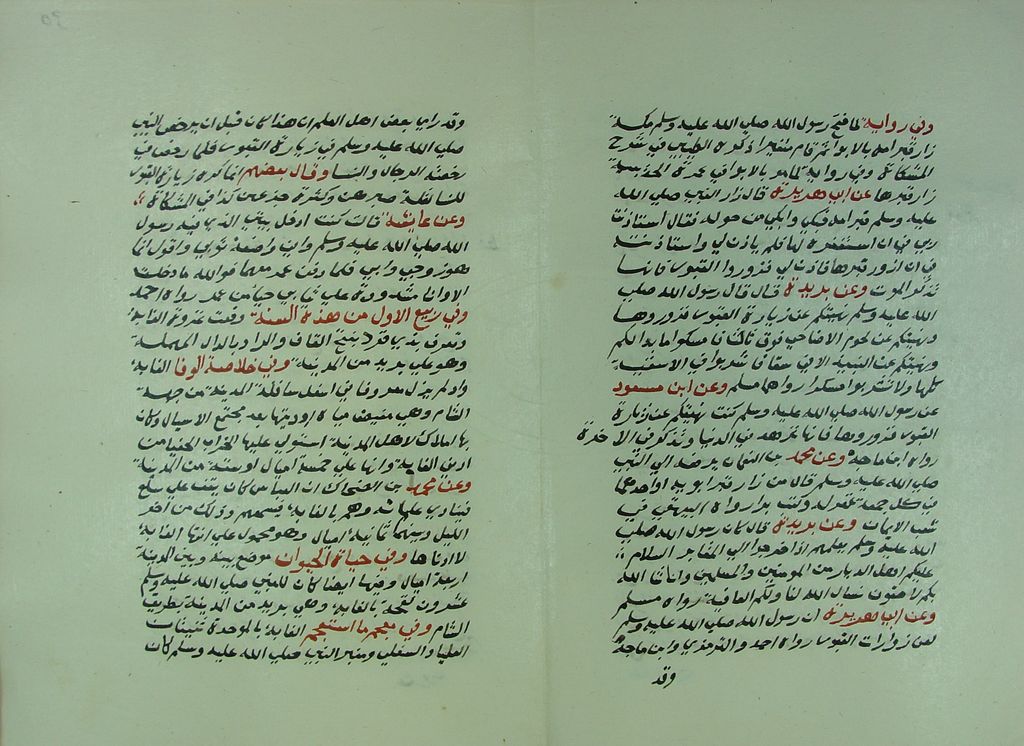 وفي رواية لما فتح رسول الله صلى الله عليه وسلم مكة
زار قبر امه بالابواء ثم قام متغيرا ذكره الطيبي في شرح
المشكاة وفي رواية لما مر بالابواء في عمرة الحديبية
زار قبرها عن ابي هريرة قال زار النبي صلى الله
عليه وسلم قبر امه فبكى وابكى من حوله فقال استاذنت
ربي في ان استغفر لها فلم ياذن لي واستاذنته
في ان ازور قبرها فاذن لي فزوروا القبور فانها
تذكر الموت وعن بريدة قال قال رسول الله صلى
الله عليه وسلم نهيتكم عن زيارة القبور فزوروها
ونهيتكم عن لحوم الاضاحي فوق ثلاث فامسكوا ما بدا لكم
ونهيتكم عن النبيذ الا في سقاء فاشربوا في الاسقية
كلها ولا تشربوا مسكرا رواهما مسلم وعن ابن مسعود
عن رسول الله صلى الله عليه وسلم كنت نهيتكم عن زيارة
القبور فزوروها فانها تزهد في الدنيا وتذكر في الاخرة
رواه ابن ماجة وعن محمد بن النعمان يرفعه الى النبي
صلى الله عليه وسلم قال من زار قبر ابويه او احدهما
في كل جمعة غفر له وكتب بارا رواه البيهقي في
شعب الايمان وعن بريدة قال كان رسول الله صلى
الله عليه وسلم يعلمهم اذا خرجوا الى المقابر السلام
عليكم اهل الديار من المومنين والمسلمين وانا ان شا الله
بكم لاحقون نسال الله لنا ولكم العافية رواه مسلم
وعن ابي هريرة ان رسول الله صلى الله عليه وسلم
لعن زوارات القبور رواه احمد والترمذي وابن ماجة
وقد
وقد راى بعض اهل العلم ان هذا كان قبل ان يرخص النبي
صلى الله عليه وسلم في زيارة القبور فلما رخص في
رخصته الرجال والنسا وقال بعضهم انما كره زيارة القبور
للنسا لقلة صبرهن وكثرة جزعهن كذا في المشكاة
وعن عايشة قالت كنت ادخل بيتي الذي فيه رسول
الله صلى الله عليه وسلم واني واضعة ثوبي واقول انما
هو زوجي وابي فلما دفن عمر معهما فوالله ما دخلت
الا وانا مشدودة علي ثيابي حياء من عمر رواه احمد
وفي ربيع الاول من هذه السنة وقعت غزوة الغابة
وتعرف بذي قرد بفتح القاف والراء وبالدال المهملة
وهو على بريد من المدينة وفي خلاصة الوفا الغابة
واد لم يزل معروفا في اسفل سافلة المدينة من جهة
الشام وهي مغيض مياه اوديتها بعد مجتمع الاسيال وكان
بها املاك لاهل المدينة استولى عليها الخراب
ادنى الغابة وانها على خمسة اميال او ستة من المدينة
وعن محمد بن الضحاك ان العباس كان يقف على سلع
فينادي غلمانه وهم بالغابة فيسمعهم وذلك من اخر
الليل وبينهما ثمانية اميال وهو محمول على انتها الغابة
لا ادناها وفي حياة الحيوان موضع بينه وبين المدينة
اربعة اميال وفيها ايضا كان للنبي صلى الله عليه وسلم
عشرون لقحة بالغابة وهي بريد من المدينة بطريق
الشام وفي معجم ما استعجم الغابة بالموحدة
العليا والسفلى ومنبر النبي صلى الله عليه وسلم كان